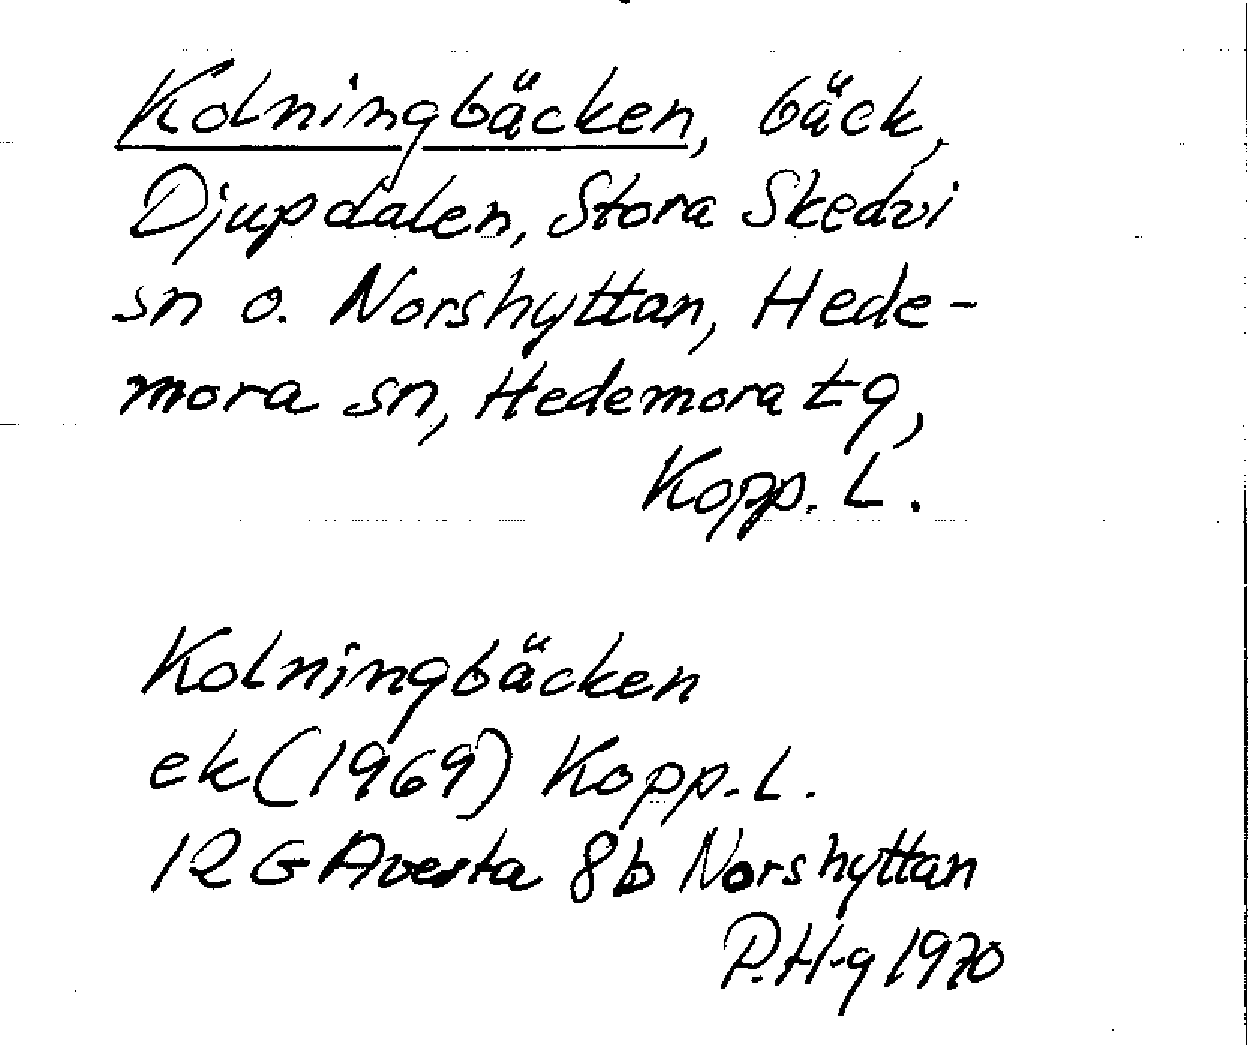 Kolningbäcken, bäck,
Djupdalen, Stora Skedvi
sn o. Norshyttan, Hede-
mora sn, Hedemora tg,
Kopp. L.
Kolningbäcken
ek (1969) Kopp. L.
12 G Avesta 8b Norshyttan
P.H-g 1970